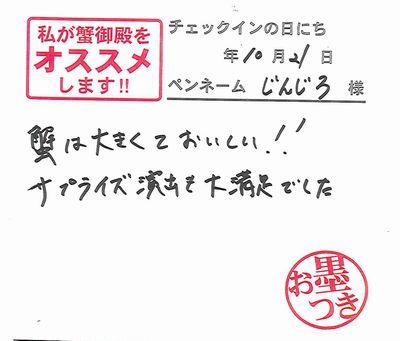 私が蟹御殿を
オススメ
します!!
チェックインの日にち
年10月21日
ペンネーム じんじろ 様
蟹は大きくておいしい!!
サプライズ演出も大満足でした
お墨つき